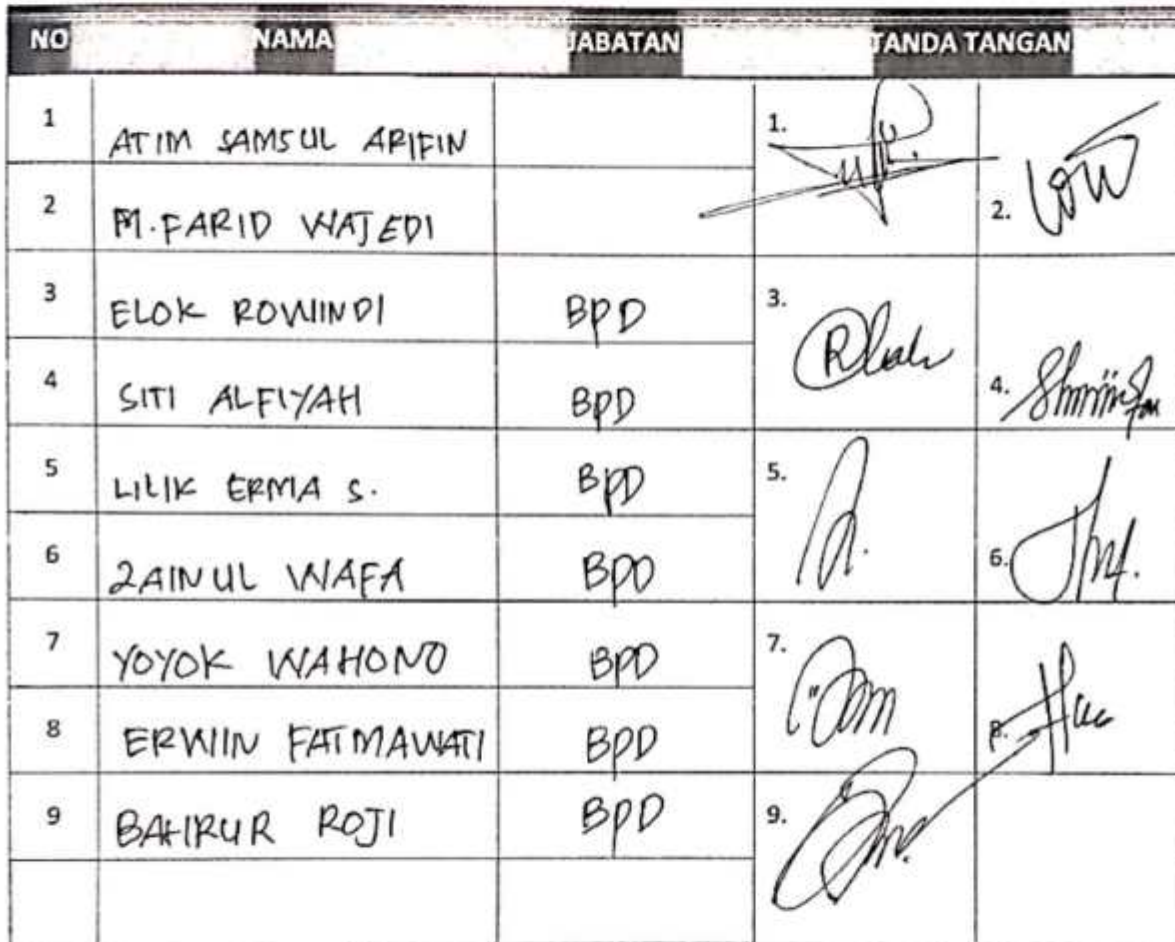 NO NAMA JABATAN TANDA TANGAN
1 ATIM SAMSUL ARIFIN 1.
2 M. FARID WAJEDI 2.
3 ELOK ROWINDI BPD 3.
4 SITI ALFIYAH BPD 4.
5 LILIK ERMA S. BPD 5.
6 ZAINUL WAFA BPD 6.
7 YOYOK WAHONO BPD 7.
8 ERWIN FATMAWATI BPD 8.
9 BAHRUR ROJI BPD 9.